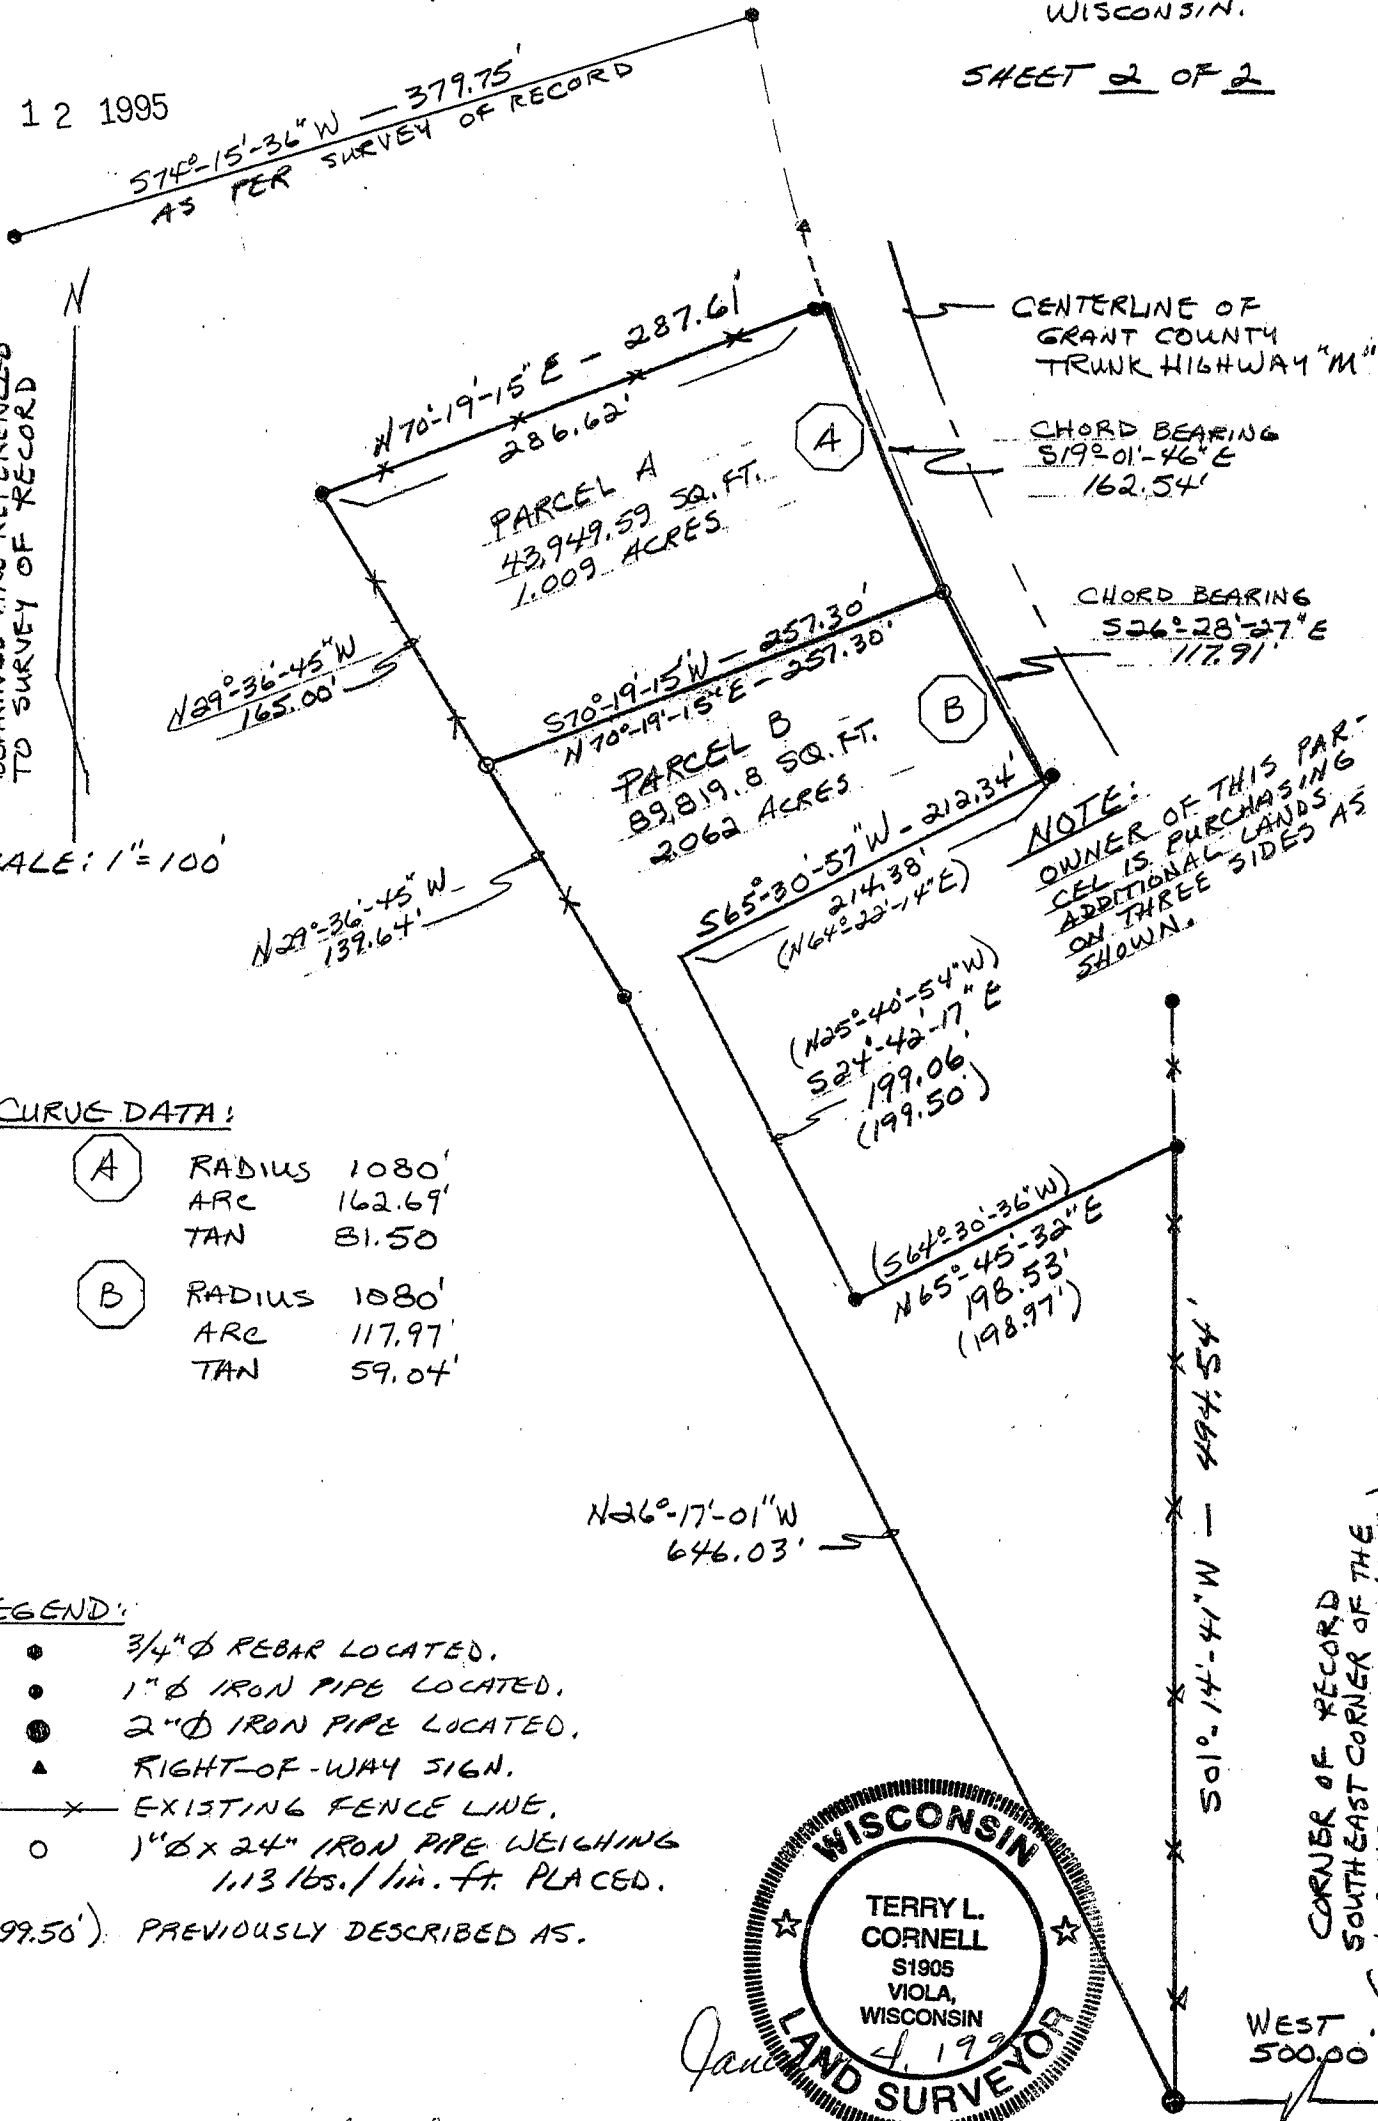 WISCONSIN.
SHEET 2 OF 2
12 1995
S74°-15'-36" W — 379.75'
AS PER SURVEY OF RECORD
N
TO SURVEY OF RECORD
SCALE: 1"=100'
N70°-19'-15" E - 287.61'
286.62'
CENTERLINE OF
GRANT COUNTY
TRUNK HIGHWAY "M"
A
CHORD BEARING
S19°-01'-46" E
162.54'
PARCEL A
43,949.59 SQ. FT.
1.009 ACRES
CHORD BEARING
S26°-28'-27" E
117.91'
N29°-36'-45" W
165.00'
S70°-19'-15" W - 257.30'
N70°-19'-15" E - 257.30'
B
PARCEL B
89,819.8 SQ. FT.
2.062 ACRES
N29°-36'-45" W
139.64'
S65°-30'-57" W - 212.34'
214.38'
(N64°-22'-14" E)
NOTE:
OWNER OF THIS PAR-
CEL IS PURCHASING
ADDITIONAL LANDS
ON THREE SIDES AS
SHOWN.
(N25°-40'-54" W)
S24°-42'-17" E
199.06'
(199.50')
CURVE DATA:
A RADIUS 1080'
ARC 162.69'
TAN 81.50
B RADIUS 1080'
ARC 117.97'
TAN 59.04'
(S64°-30'-36" W)
N65°-45'-32" E
198.53'
(198.97')
S01°-14'-41" W — 494.54'
N26°-17'-01" W
646.03'
CORNER OF RECORD
SOUTHEAST CORNER OF THE
LEGEND:
3/4" Ø REBAR LOCATED.
1" Ø IRON PIPE LOCATED.
2" Ø IRON PIPE LOCATED.
RIGHT-OF-WAY SIGN.
EXISTING FENCE LINE.
1" Ø x 24" IRON PIPE WEIGHING
1.13 lbs./lin. ft. PLACED.
99.50') PREVIOUSLY DESCRIBED AS.
WISCONSIN
TERRY L.
CORNELL
S1905
VIOLA,
WISCONSIN
LAND SURVEYOR
4, 199
WEST
500.00'